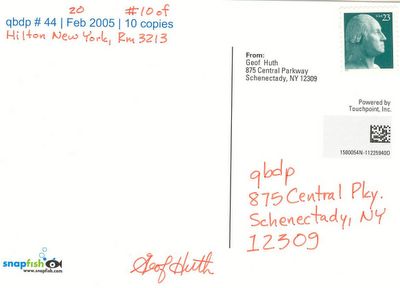 20 #10 of
qbdp # 44 | Feb 2005 | 10 copies
Hilton New York, Rm 3213
From:
Geof Huth
875 Central Parkway
Schenectady, NY 12309
USA 23
Powered by
Touchpoint, Inc.
1580054N-11225940O
qbdp
875 Central Pky.
Schenectady, NY
12309
Geof Huth
snapfish
www.snapfish.com